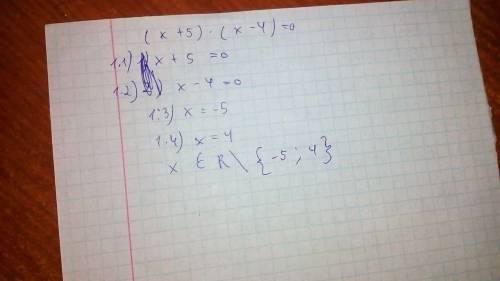 (x+5)·(x-4)=0
1.1) x+5=0
1.2) x-4=0
1.3) x=-5
1.4) x=4
x ∈ R\{-5; 4}